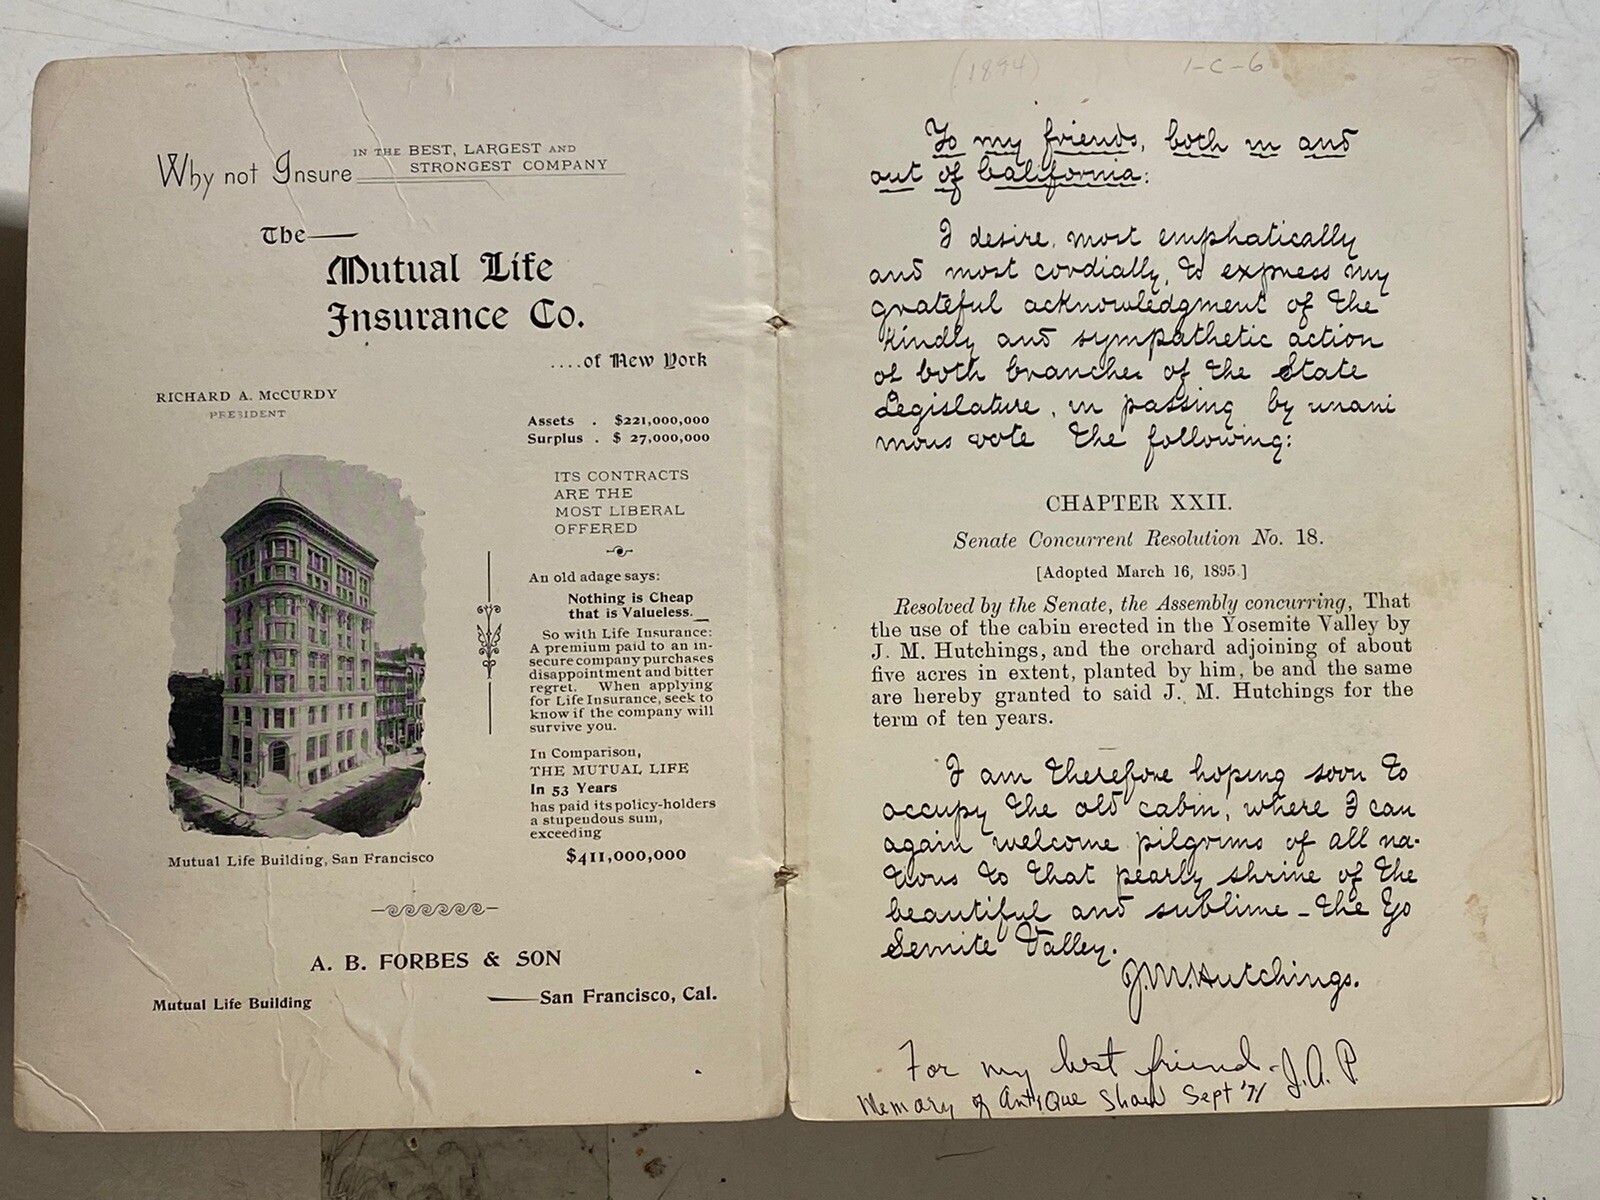 Why not Insure IN THE BEST, LARGEST AND
STRONGEST COMPANY
The
Mutual Life
Insurance Co.
....of New York
RICHARD A. McCURDY
PRESIDENT
Assets . $221,000,000
Surplus . $ 27,000,000
ITS CONTRACTS
ARE THE
MOST LIBERAL
OFFERED
An old adage says:
Nothing is Cheap
that is Valueless.
So with Life Insurance:
A premium paid to an in-
secure company purchases
disappointment and bitter
regret. When applying
for Life Insurance, seek to
know if the company will
survive you.
In Comparison,
THE MUTUAL LIFE
In 53 Years
has paid its policy-holders
a stupendous sum,
exceeding
$411,000,000
Mutual Life Building, San Francisco
A. B. FORBES & SON
Mutual Life Building
San Francisco, Cal.
(1894) 1-C-6
To my friends, both in and
out of California:
I desire, most emphatically
and most cordially, to express my
grateful acknowledgment of the
kindly and sympathetic action
of both branches of the State
Legislature, in passing by unani
mous vote the following:
CHAPTER XXII.
Senate Concurrent Resolution No. 18.
[Adopted March 16, 1895.]
Resolved by the Senate, the Assembly concurring, That
the use of the cabin erected in the Yosemite Valley by
J. M. Hutchings, and the orchard adjoining of about
five acres in extent, planted by him, be and the same
are hereby granted to said J. M. Hutchings for the
term of ten years.
I am therefore hoping soon to
occupy the old cabin, where I can
again welcome pilgrims of all na-
tions to that pearly shrine of the
beautiful and sublime - the Yo
Semite Valley.
J. M. Hutchings.
For my best friend - J.A.P.
Memory of Antique Show Sept '71